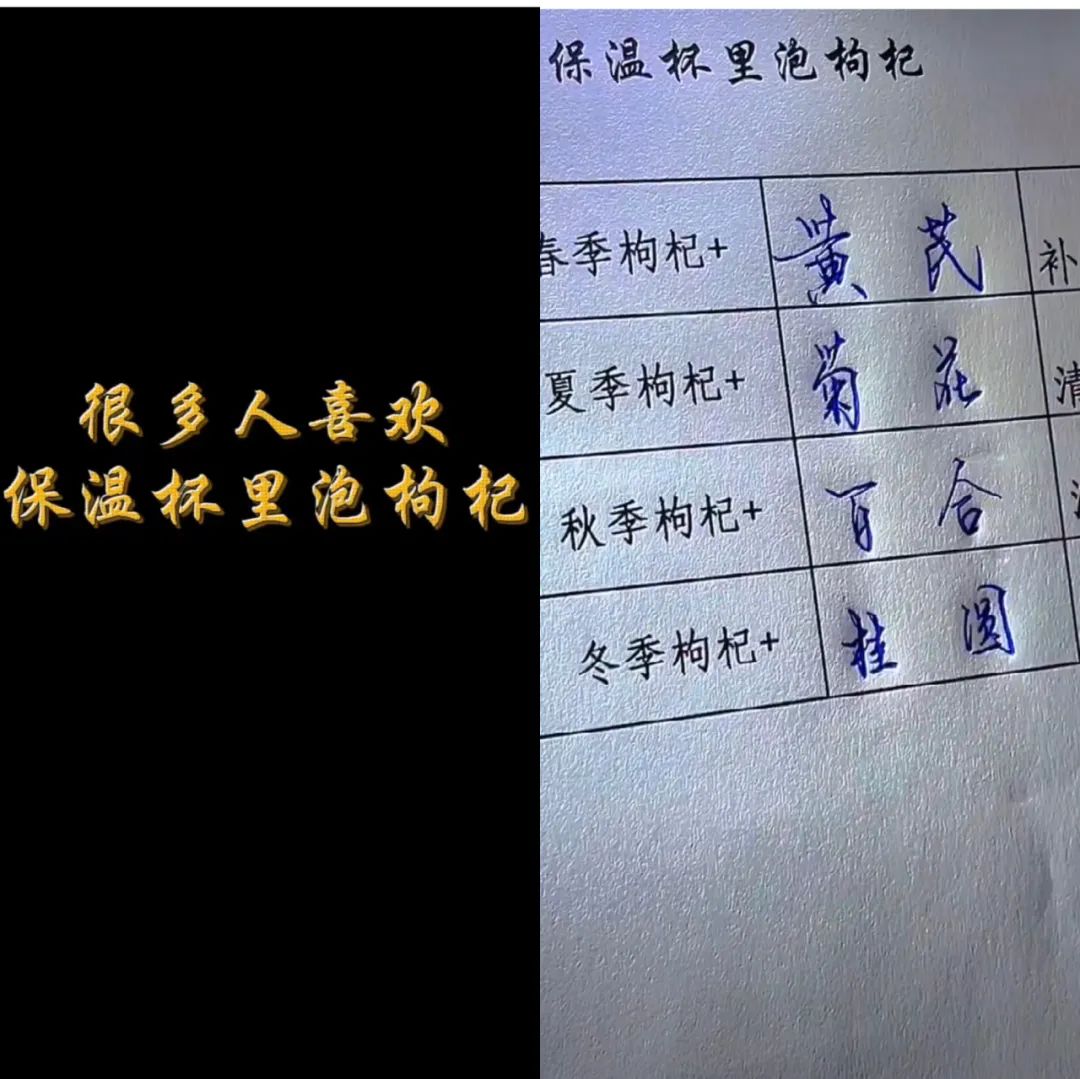 很多人喜欢
保温杯里泡枸杞
保温杯里泡枸杞
春季枸杞+ 黄芪 补
夏季枸杞+ 菊花 清
秋季枸杞+ 百合
冬季枸杞+ 桂圆